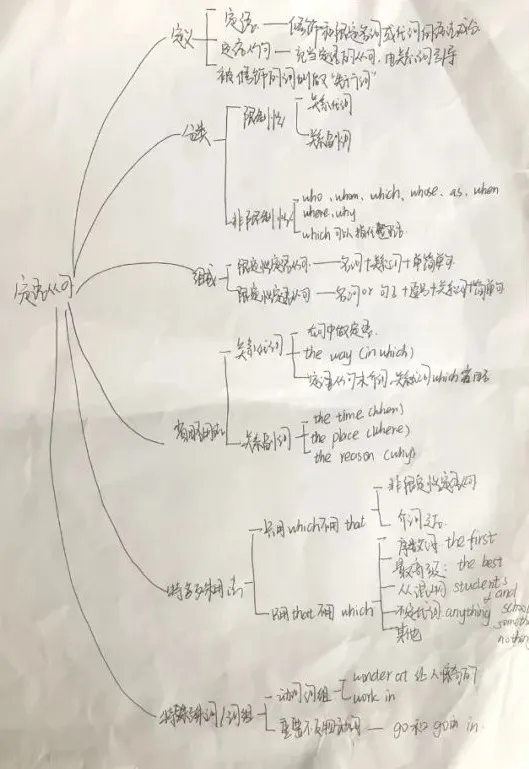 定语从句
定义
定语——修饰和限定名词或代词的句法成分
定语从句——充当定语的从句,由关系词引导
被修饰的词叫做"先行词"
分类
限制性
关系代词
关系副词
非限制性
who、whom、which、whose、as、when
where、why
which可以指代整
组成
限定性定语从句——名词+关系词+单简单句
限定性定语从句——名词or句子+逗号+关系词+简单句
关系代词
在句中做定语
the way (in which)
定语从句 介词 关系代词which
关系副词
the time (when)
the place (where)
the reason (why)
特殊用法
只用which不用that
非限定性定语从句
介词之后
只用that不用which
序数词 the first
最高级:the best
students and school
不定代词 anything something nothing
其他
特殊动词/词组
动词词组
wonder at 让人惊奇的
work in
重要不及物动词——go和go in